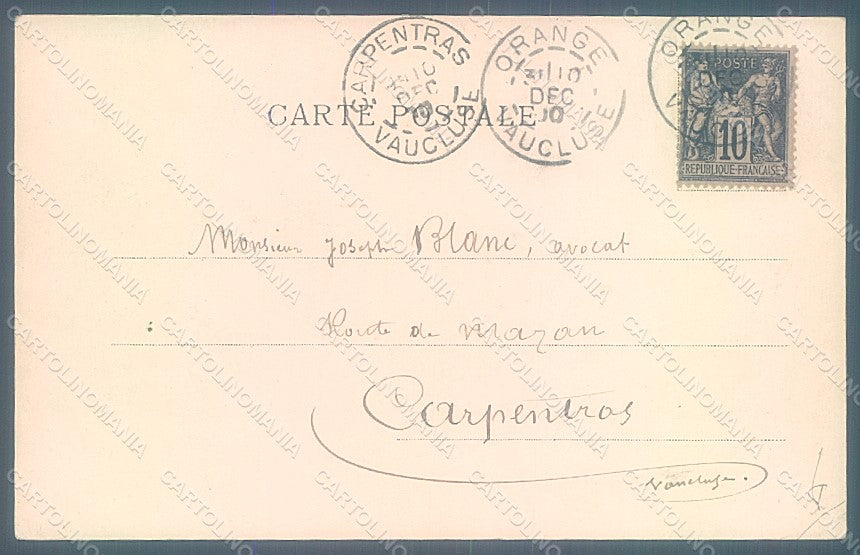 CARPENTRAS
10
DEC
VAUCLUSE
ORANGE
10
DEC
VAUCLUSE
ORANGE
DEC
CARTE POSTALE
POSTE
10
REPUBLIQUE·FRANÇAISE
Monsieur Joseph Blanc, avocat
Route de Mazan
Carpentras
Vaucluse.
CARTOLINOMANIA